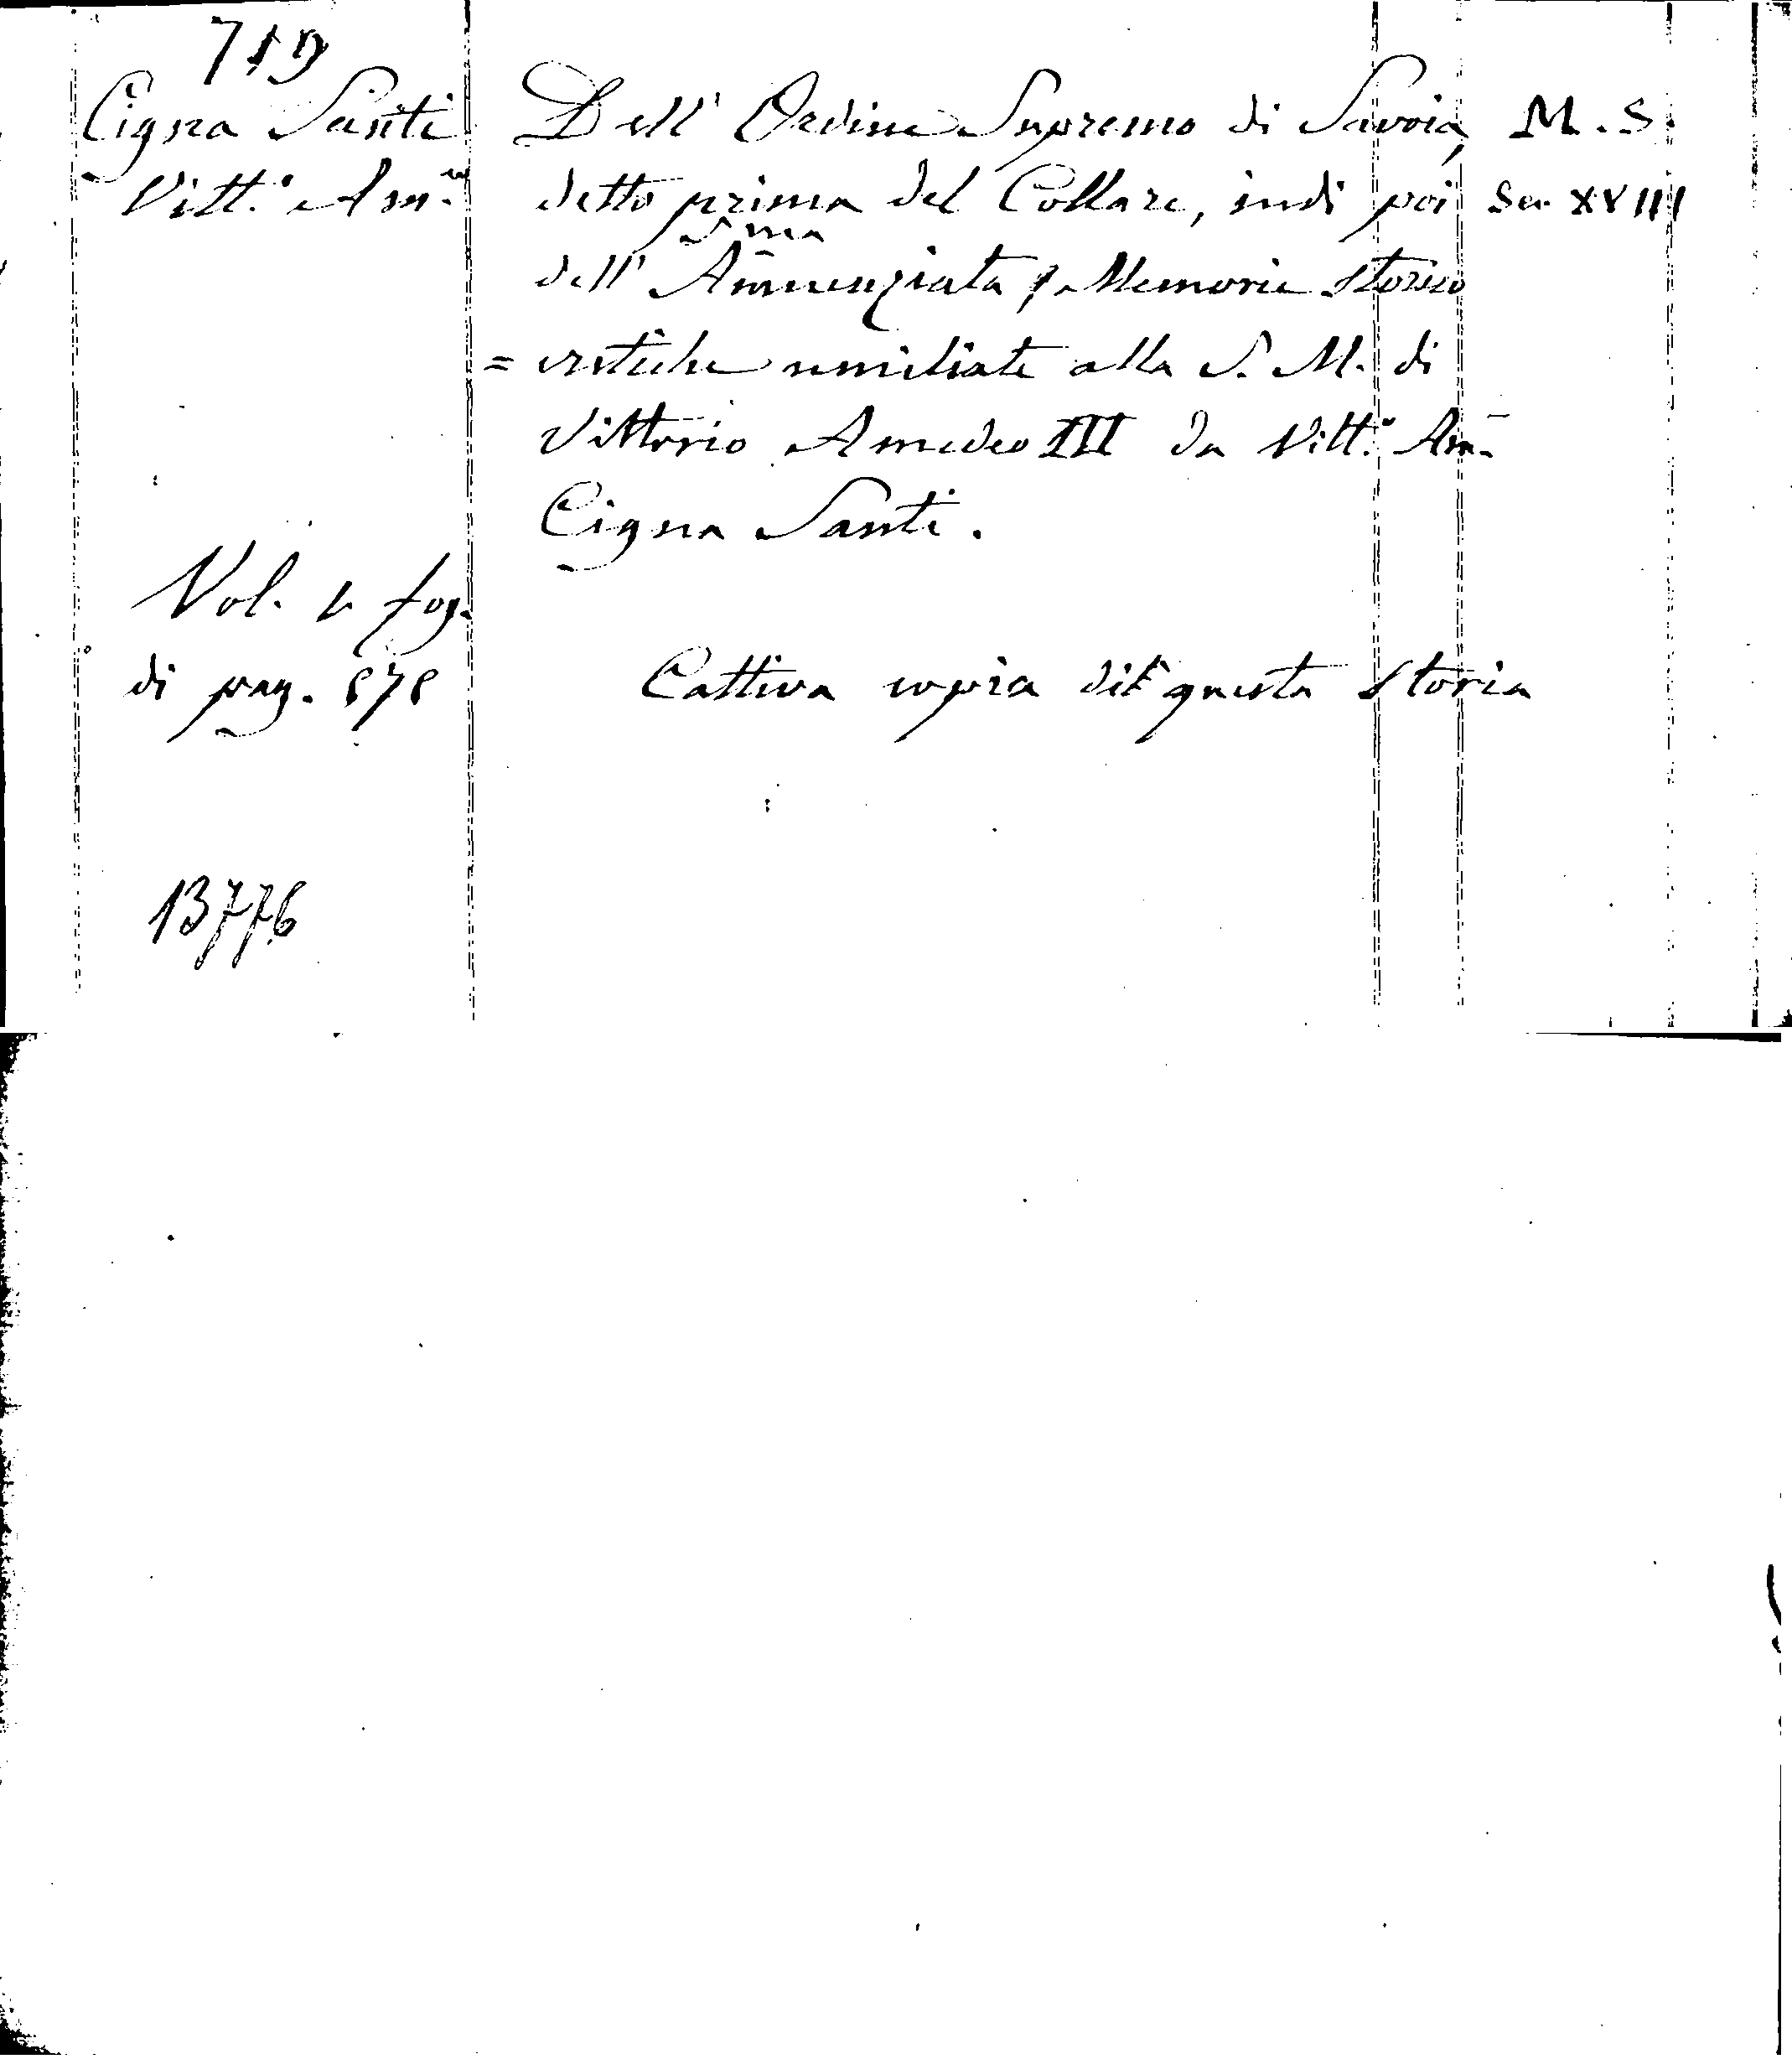 719
Cigna Santi
Vitt.º Am.º
Dell' Ordine Supremo di Savoia,
detto prima del Collare, indi poi
S.ma
dell' Annunziata, Memorie storico
= critiche umiliate alla S. M. di
Vittorio Amedeo III da Vitt.º Am.
Cigna Santi.
M. S.
Sec. XVIII
Vol. 1. fog.
di pag. 878
Cattiva copia di questa Storia
13776